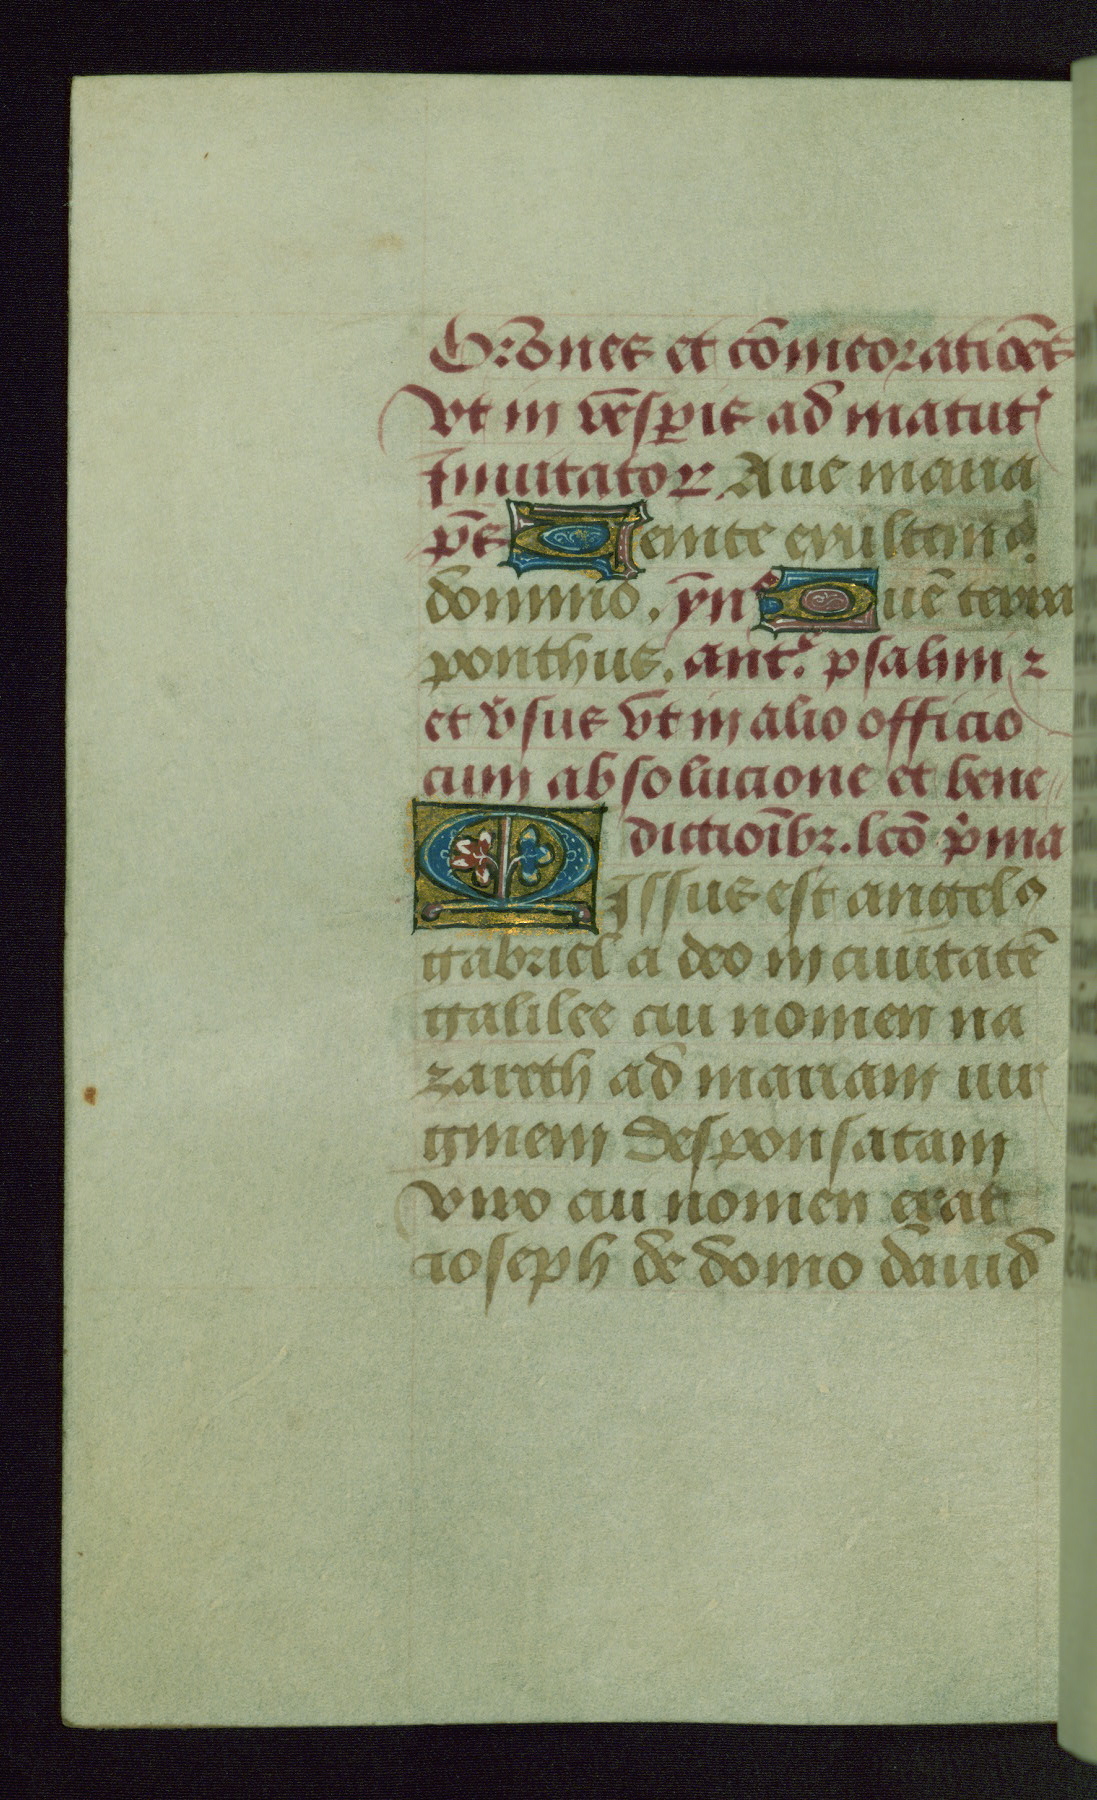 Orōnes et cōmeoratiōes
vt in vēspis ad matut'
Inuitator. Aue maria
ps̄ Uenite exultemꝰ
domino. ym̄s Quē terra
ponthus. ant'. psalmi
et v̄sus vt in alio officio
cum absolucione et bene
dictioībꝫ. lcō pͥma
MIssus est angelꝰ
gabriel a deo in ciuitatē
galilee cui nomen na
zareth ad mariam uir
ginem desponsatam
viro cui nomen erat
ioseph de domo dauid